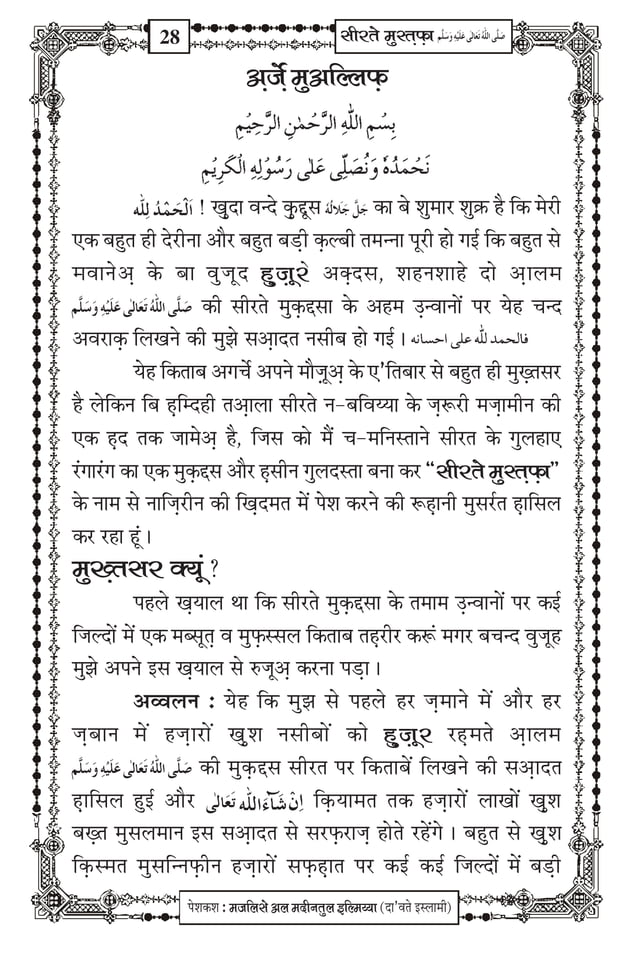 28
सीरते मुस्तफ़ा صَلَّى اللّٰهُ تَعَالٰى عَلَيْهِ وَسَلَّم
अ़र्ज़े मुअल्लिफ़
بِسْمِ اللّٰهِ الرَّحْمٰنِ الرَّحِيْمِ
نَحْمَدُهٗ وَنُصَلِّىْ عَلٰى رَسُوْلِهِ الْكَرِيْمِ
اَلْحَمْدُ لِلّٰه ! ख़ुदा वन्दे क़ुद्दूस جَلَّ جَلَالُهٗ का बे शुमार शुक्र है कि मेरी
एक बहुत ही देरीना और बहुत बड़ी क़ल्बी तमन्ना पूरी हो गई कि बहुत से
मवानेअ़ के बा वुजूद हुज़ूरे अक़्दस, शहनशाहे दो आ़लम
صَلَّى اللّٰهُ تَعَالٰى عَلَيْهِ وَسَلَّم की सीरते मुक़द्दसा के अहम उ़न्वानों पर येह चन्द
अवराक़ लिखने की मुझे सआ़दत नसीब हो गई । فالحمد للّٰه على احسانه
येह किताब अगर्चे अपने मौज़ूअ़ के ए'तिबार से बहुत ही मुख़्तसर
है लेकिन बि ह़म्दिही तआ़ला सीरते न-बविय्या के ज़रूरी मज़ामीन की
एक ह़द तक जामेअ़ है, जिस को मैं च-मनिस्ताने सीरत के गुलहाए
रंगारंग का एक मुक़द्दस और ह़सीन गुलदस्ता बना कर “सीरते मुस्तफ़ा”
के नाम से नाज़िरीन की ख़िदमत में पेश करने की रूह़ानी मुसर्रत ह़ासिल
कर रहा हूं ।
मुख़्तसर क्यूं ?
पहले ख़याल था कि सीरते मुक़द्दसा के तमाम उ़न्वानों पर कई
जिल्दों में एक मब्सूत़ व मुफ़स्सल किताब तह़रीर करूं मगर बचन्द वुजूह
मुझे अपने इस ख़याल से रुजूअ़ करना पड़ा ।
अव्वलन : येह कि मुझ से पहले हर ज़माने में और हर
ज़बान में हज़ारों ख़ुश नसीबों को हुज़ूर रह़मते आ़लम
صَلَّى اللّٰهُ تَعَالٰى عَلَيْهِ وَسَلَّم की मुक़द्दस सीरत पर किताबें लिखने की सआ़दत
ह़ासिल हुई और اِنْ شَآءَ اللّٰه تَعَالٰى क़ियामत तक हज़ारों लाखों ख़ुश
बख़्त मुसलमान इस सआ़दत से सरफ़राज़ होते रहेंगे । बहुत से ख़ुश
क़िस्मत मुसन्निफ़ीन हज़ारों सफ़ह़ात पर कई कई जिल्दों में बड़ी
पेशकश : मजलिसे अल मदीनतुल इ़ल्मिय्या (दा'वते इस्लामी)